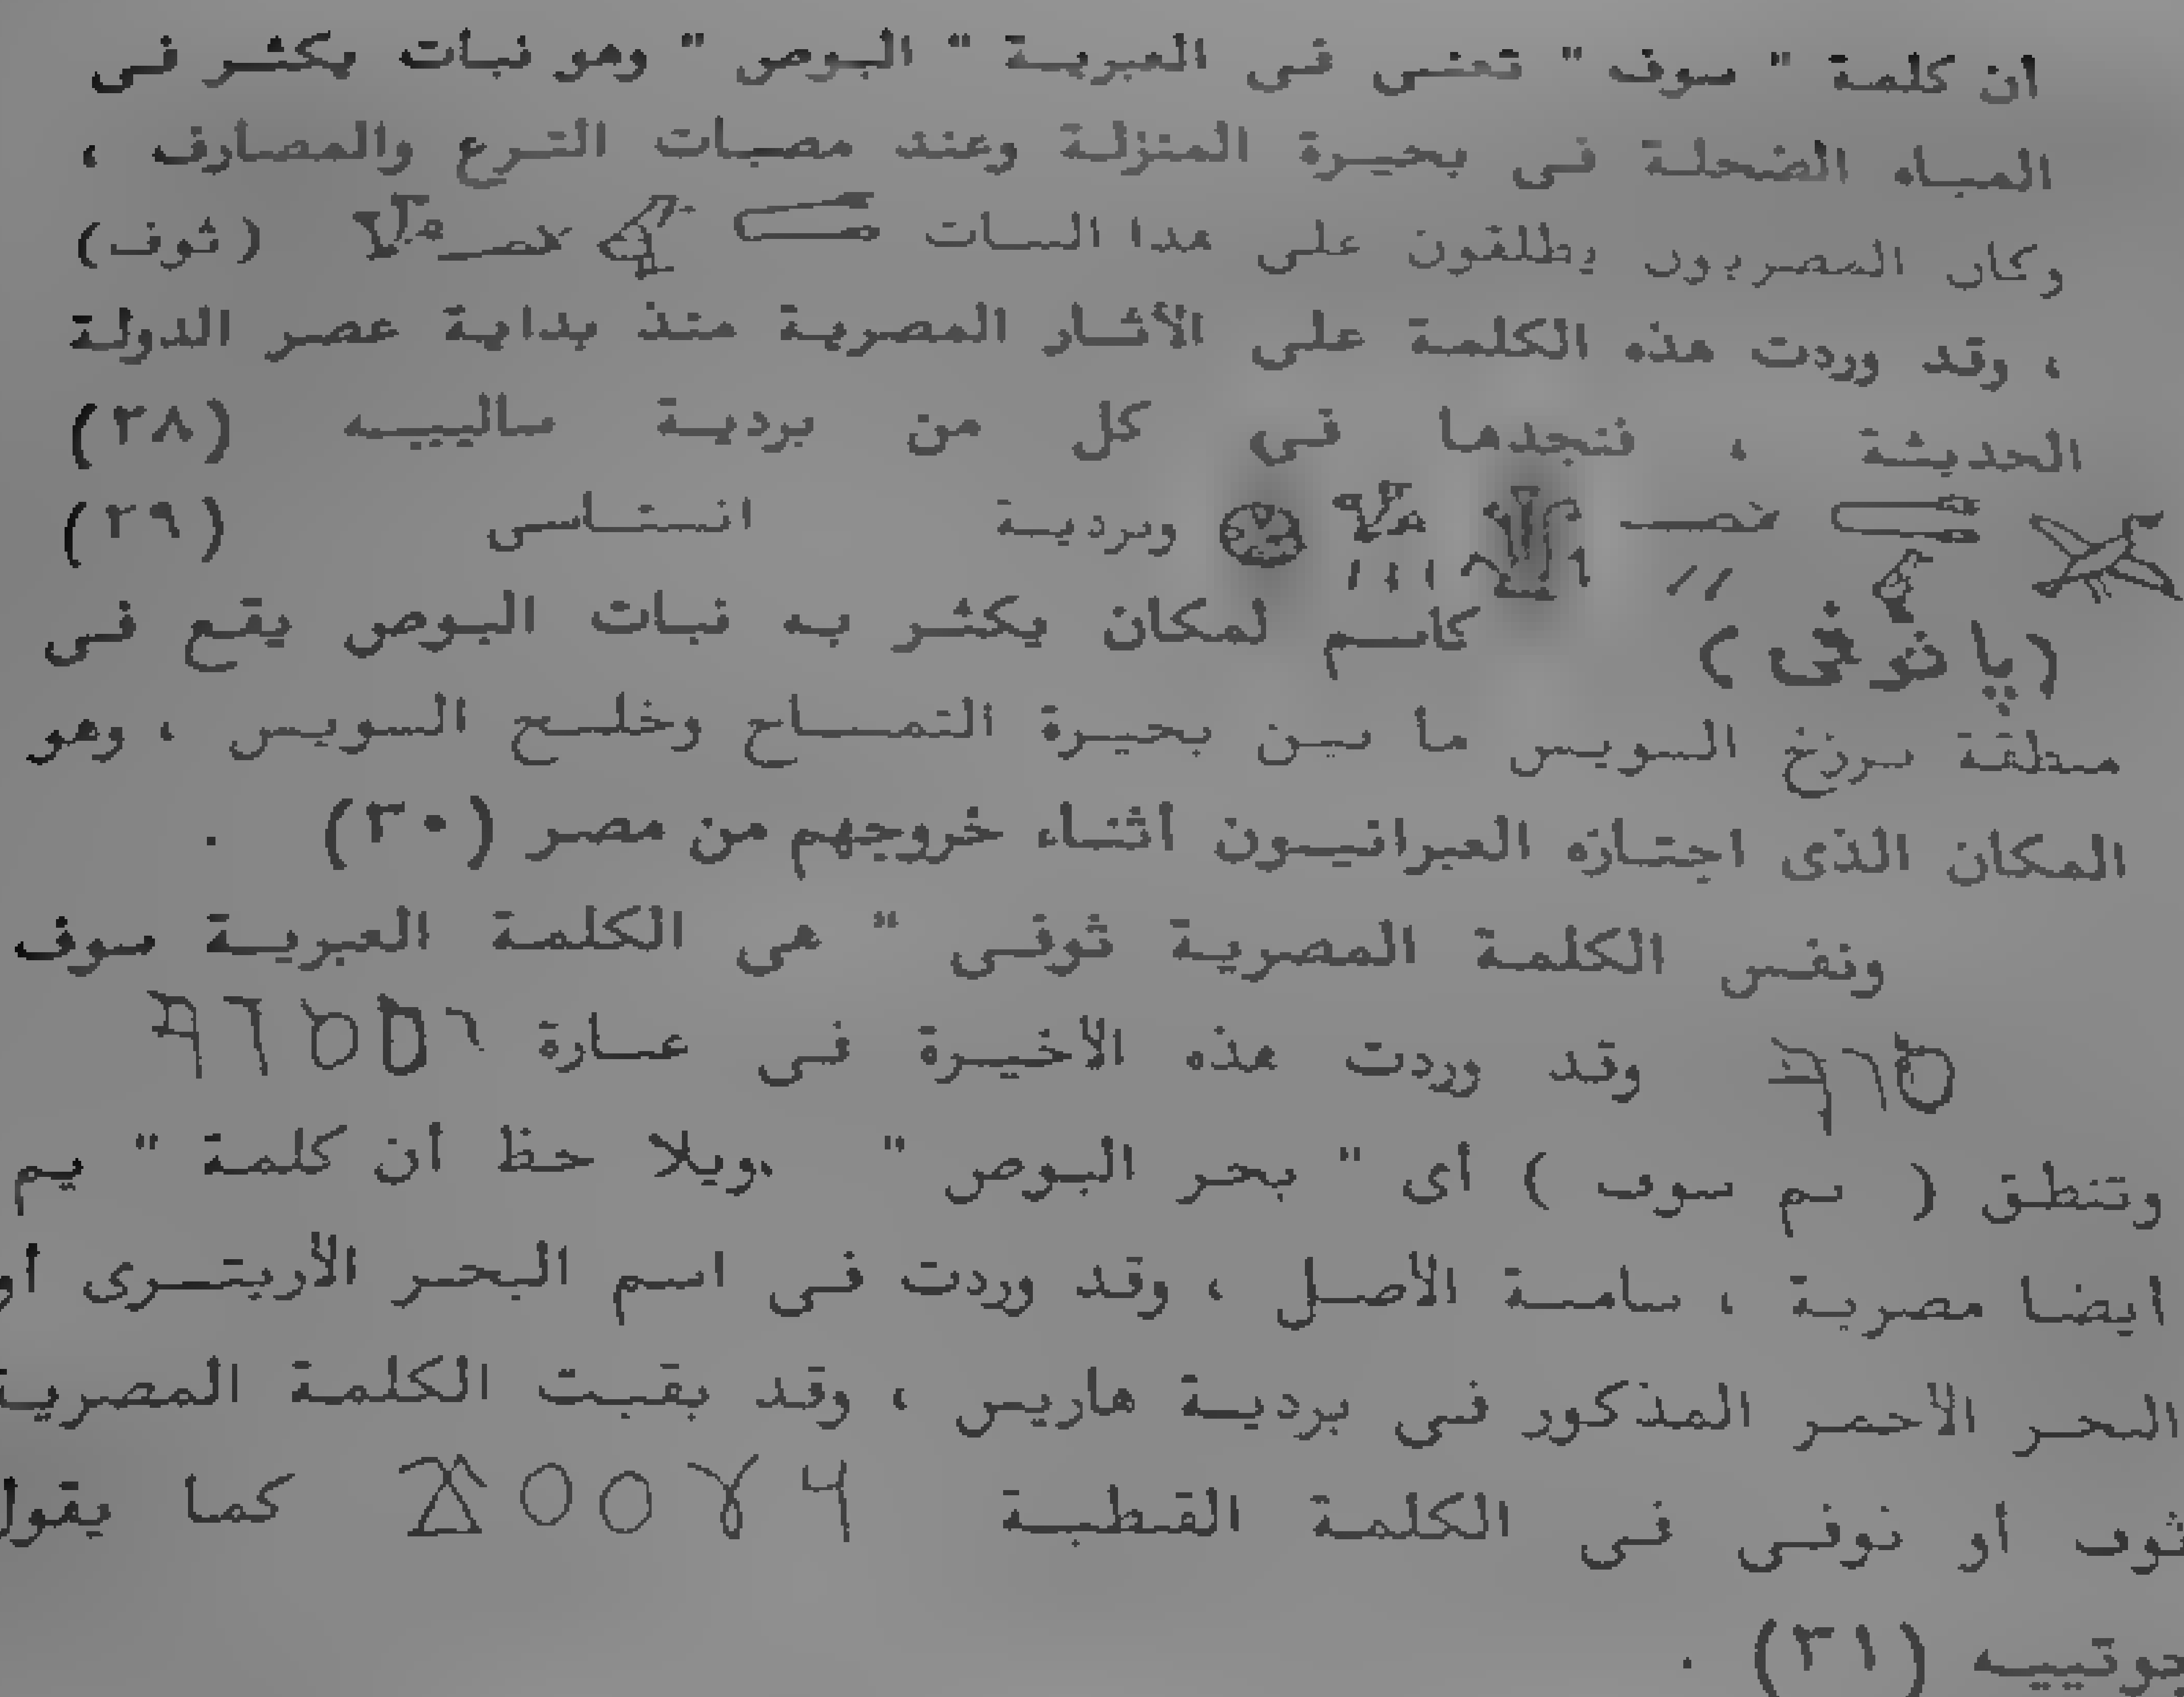 ان كلمة " سوف " تعنى فى العبرية " البوص " وهو نبات يكثر فى
المياه الضحلة فى بحيرة المنزلة وعند مصبات الترع والمصارف ،
وكان المصريون يطلقون على هذا النبات (ثوف)
، وقد وردت هذه الكلمة على الأثار المصرية منذ بداية عصر الدولة
الحديثة ، فنجدها فى كل من بردية سالييه (٢٨)
وبردية انستاسى (٢٩)
(پاثوفى) كاسم لمكان يكثر به نبات البوص يقع فى
منطقة برزخ السويس ما بين بحيرة التمساح وخليج السويس ، وهو
المكان الذى اجتازه العبرانيون أثناء خروجهم من مصر (٣٠) .
ونفس الكلمة المصرية ثوفى " هى الكلمة العبرية سوف
وقد وردت هذه الاخيرة فى عبارة
وتنطق ( يم سوف ) أى " بحر البوص " .ويلا حظ أن كلمة " يم
ايضا مصرية ، سامية الأصل ، وقد وردت فى اسم البحر الأريترى أو
البحر الأحمر المذكور فى بردية هاريس ، وقد بقيت الكلمة
ثوف أو ثوفى فى الكلمة القبطية كما يقول
(٣١) .